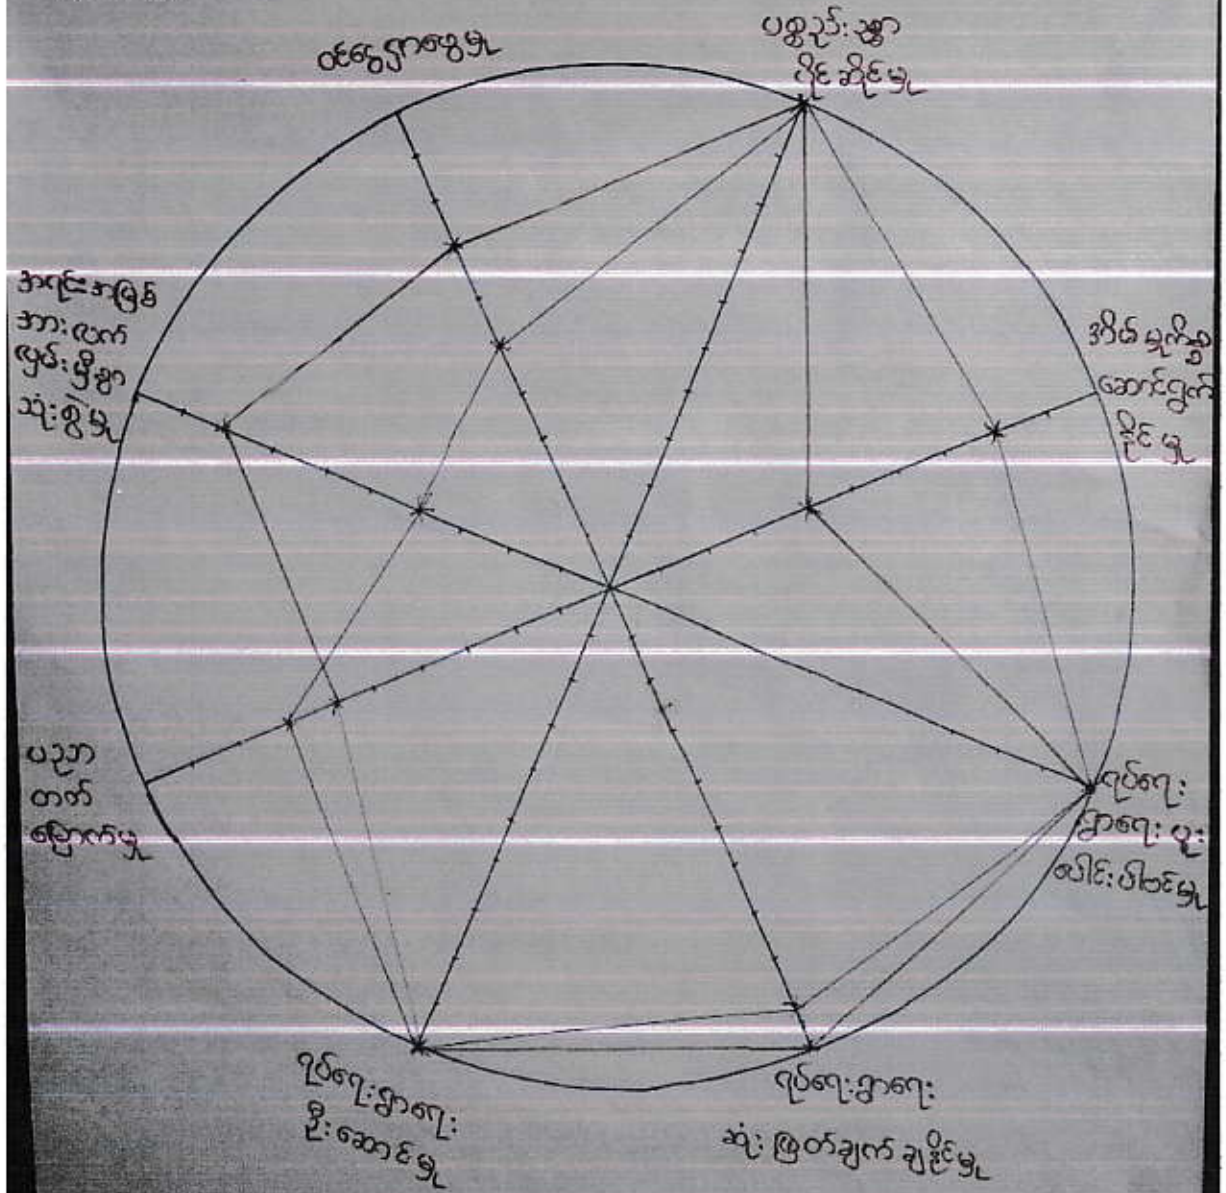 ဝင်ငွေရှာဖွေမှု
ပစ္စည်းဥစ္စာ
ပိုင်ဆိုင်မှု
အိမ်မှုကိစ္စ
ဆောင်ရွက်
နိုင်မှု
ရပ်ရေး
ရွာရေး ပူး
ပေါင်းပါဝင်မှု
ရပ်ရေးရွာရေး
ဆုံးဖြတ်ချက် ချနိုင်မှု
ရပ်ရေးရွာရေး
ဦးဆောင်မှု
ပညာ
တတ်
မြောက်မှု
အရင်းအမြစ်
အားလက်
လှမ်းမှီစွာ
သုံးစွဲမှု